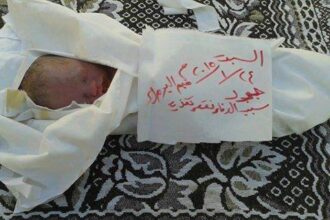 السبت
٢٤ / ١ / ٢٠١٥ م مخيم اليرموك
سبب الوفاة نقص تغذية